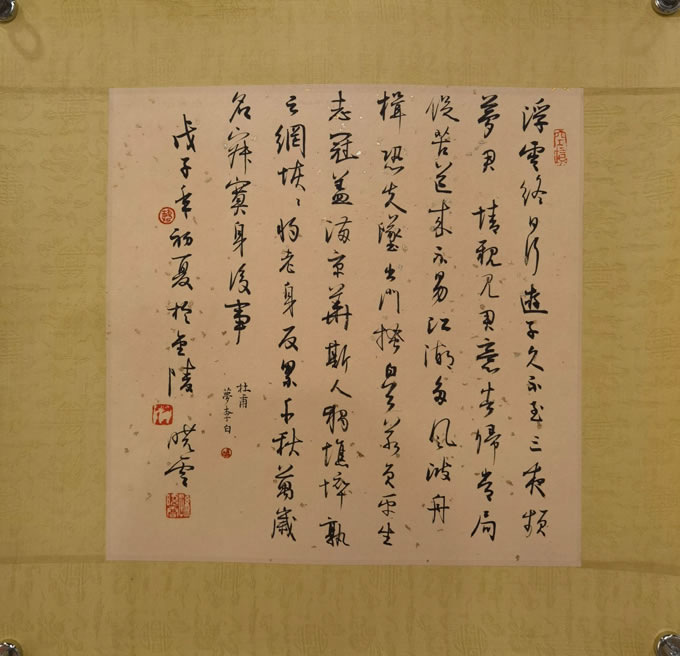 浮雲終日行遊子久不至三夜頻
夢君情親見君意告歸常局
促苦道来不易江湖多風波舟
楫恐失墜出門搔白首若負平生
志冠盖滿京華斯人獨憔悴孰
云網恢〻將老身反累千秋萬歲
名寂寞身後事
杜甫
夢李白
戊子年初夏於金陵 曉雲